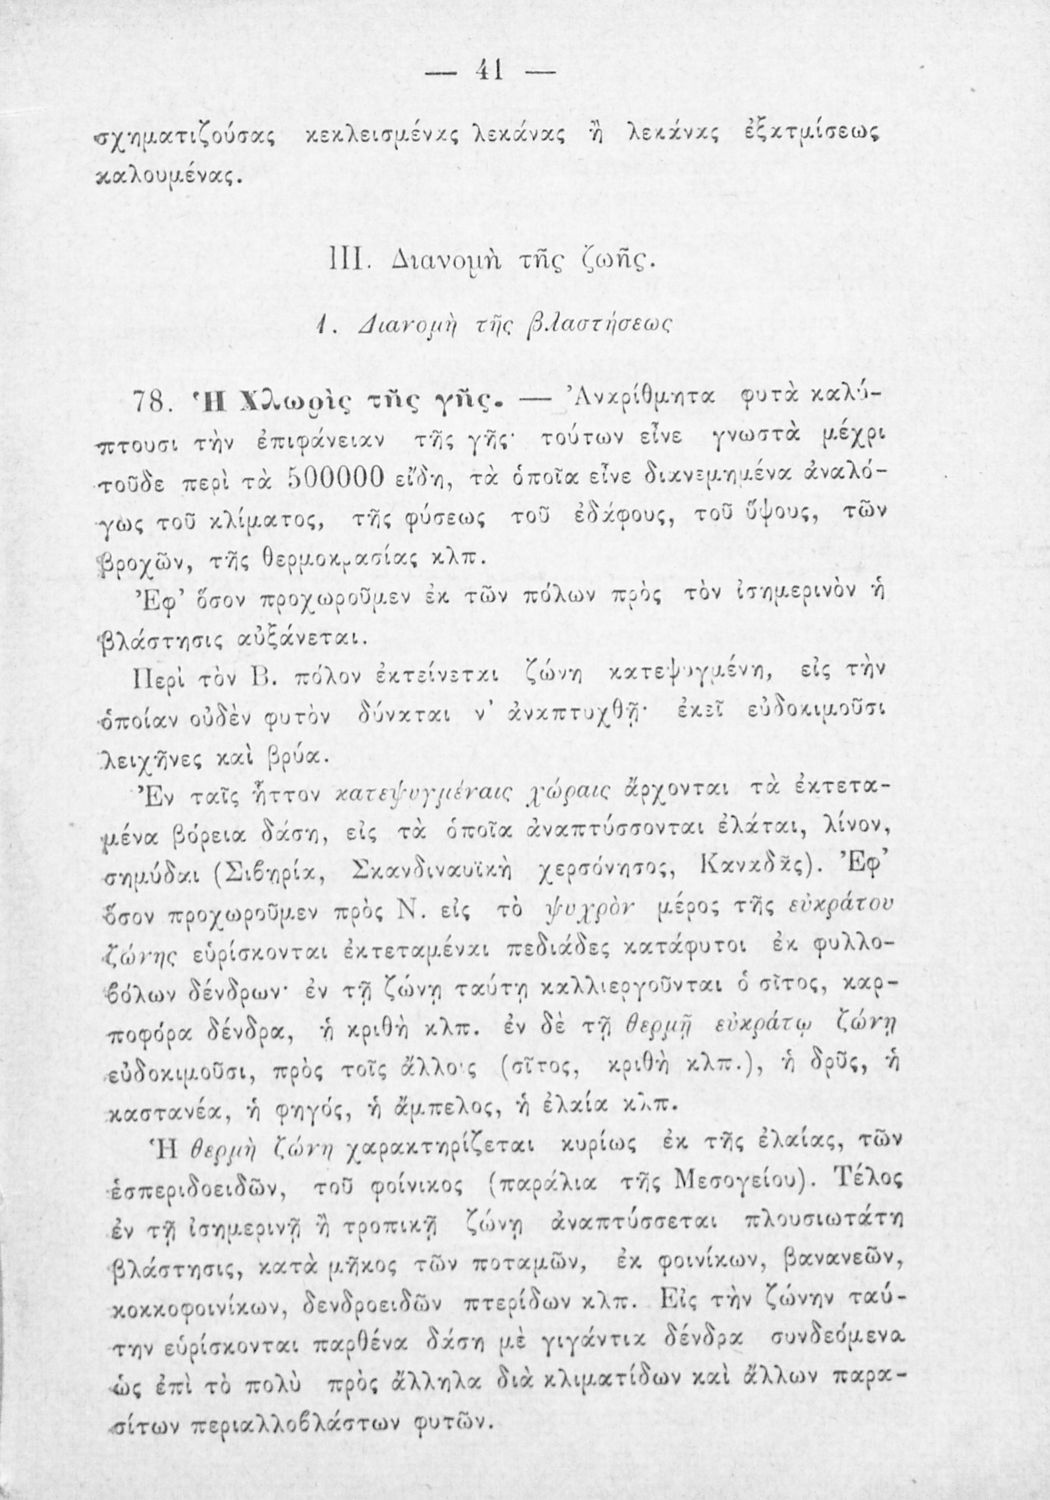 — 41 —
σχηματιζούσας κεκλεισμένας λεκάνας ἢ λεκάνας ἐξατμίσεως
καλουμένας.
III. Διανομὴ τῆς ζωῆς.
1. Διανομὴ τῆς βλαστήσεως
78. Ἡ Χλωρὶς τῆς γῆς. — Ἀναρίθμητα φυτὰ καλύ-
πτουσι τὴν ἐπιφάνειαν τῆς γῆς· τούτων εἶνε γνωστὰ μέχρι
τοῦδε περὶ τὰ 500000 εἴδη, τὰ ὁποῖα εἶνε διανεμημένα ἀναλό-
γως τοῦ κλίματος, τῆς φύσεως τοῦ ἐδάφους, τοῦ ὕψους, τῶν
βροχῶν, τῆς θερμοκρασίας κλπ.
Ἐφ’ ὅσον προχωροῦμεν ἐκ τῶν πόλων πρὸς τὸν ἰσημερινὸν ἡ
βλάστησις αὐξάνεται.
Περὶ τὸν Β. πόλον ἐκτείνεται ζώνη κατεψυγμένη, εἰς τὴν
ὁποίαν οὐδὲν φυτὸν δύναται ν’ ἀναπτυχθῇ· ἐκεῖ εὐδοκιμοῦσι
λειχῆνες καὶ βρύα.
Ἐν ταῖς ἧττον κατεψυγμέναις χώραις ἄρχονται τὰ ἐκτετα-
μένα βόρεια δάση, εἰς τὰ ὁποῖα ἀναπτύσσονται ἐλάται, λίνον,
σημύδαι (Σιβηρία, Σκανδιναυϊκὴ χερσόνησος, Καναδᾶς). Ἐφ’
ὅσον προχωροῦμεν πρὸς Ν. εἰς τὸ ψυχρὸν μέρος τῆς εὐκράτου
ζώνης εὑρίσκονται ἐκτεταμέναι πεδιάδες κατάφυτοι ἐκ φυλλο-
βόλων δένδρων· ἐν τῇ ζώνῃ ταύτῃ καλλιεργοῦνται ὁ σῖτος, καρ-
ποφόρα δένδρα, ἡ κριθὴ κλπ. ἐν δὲ τῇ θερμῇ εὐκράτῳ ζώνῃ
εὐδοκιμοῦσι, πρὸς τοῖς ἄλλοις (σῖτος, κριθὴ κλπ.), ἡ δρῦς, ἡ
καστανέα, ἡ φηγός, ἡ ἄμπελος, ἡ ἐλαία κλπ.
Ἡ θερμὴ ζώνη χαρακτηρίζεται κυρίως ἐκ τῆς ἐλαίας, τῶν
ἑσπεριδοειδῶν, τοῦ φοίνικος (παράλια τῆς Μεσογείου). Τέλος
ἐν τῇ ἰσημερινῇ ἢ τροπικῇ ζώνῃ ἀναπτύσσεται πλουσιωτάτη
βλάστησις, κατὰ μῆκος τῶν ποταμῶν, ἐκ φοινίκων, βανανεῶν,
κοκκοφοινίκων, δενδροειδῶν πτερίδων κλπ. Εἰς τὴν ζώνην ταύ-
την εὑρίσκονται παρθένα δάση μὲ γιγάντια δένδρα συνδεόμενα
ὡς ἐπὶ τὸ πολὺ πρὸς ἄλληλα διὰ κλιματίδων καὶ ἄλλων παρα-
σίτων περιαλλοβλάστων φυτῶν.